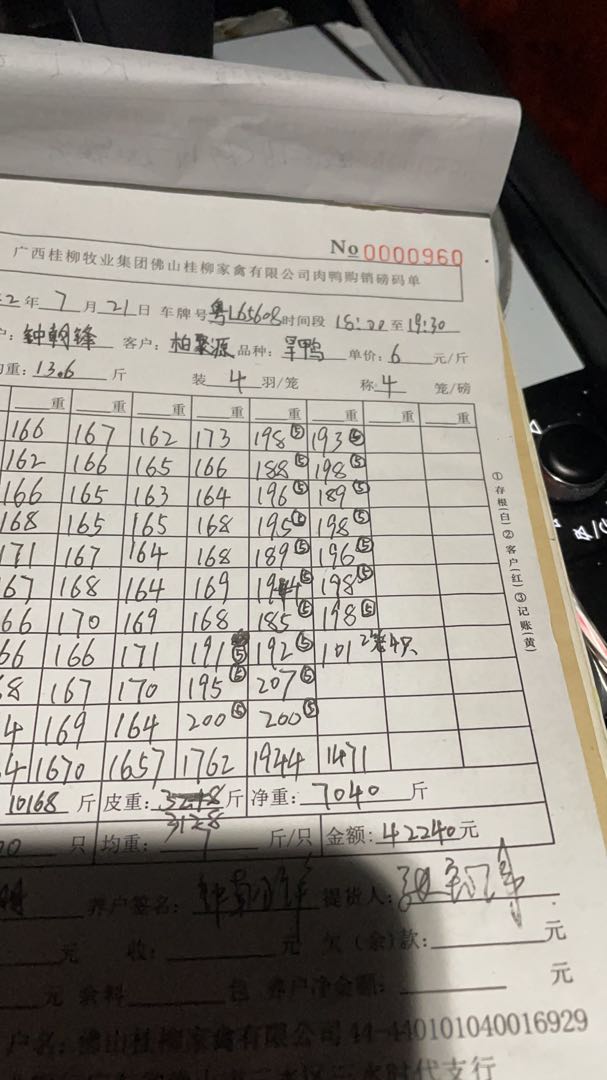 No 0000960
广西桂柳牧业集团佛山桂柳家禽有限公司肉鸭购销磅码单
2年 7 月 21 日 车牌号 粤L65608 时间段 18:20 至 19:30
客户: 柏聚源 品种: 旱鸭 单价: 6 元/斤
均重: 13.6 斤 装 4 羽/笼 称 4 笼/磅
重 重 重 重 重 重 重 重
166 167 162 173 198⑤ 193⑤
162 166 165 166 188⑤ 198⑤
166 165 163 164 196⑤ 189⑤
168 165 165 168 195⑤ 198⑤
171 167 164 168 189⑤ 196⑤
67 168 164 169 194⑤ 198⑤
66 170 169 168 185⑤ 198⑤
66 166 171 191⑤ 192⑤ 101 2笼4只
8 167 170 195⑤ 207⑤
4 169 164 200⑤ 200⑤
4 1670 1657 1762 1944 1471
10168 斤 皮重: 斤 净重: 7040 斤
3128
0 只 均重: 斤/只 金额: 42240元
养户签名: 提货人:
元 收: 元 欠(余)款: 元
元 余料 包 养户净金额: 元
户名: 佛山桂柳家禽有限公司 44-440101040016929
水时代支行
①存根(白) ②客户(红) ③记账(黄)